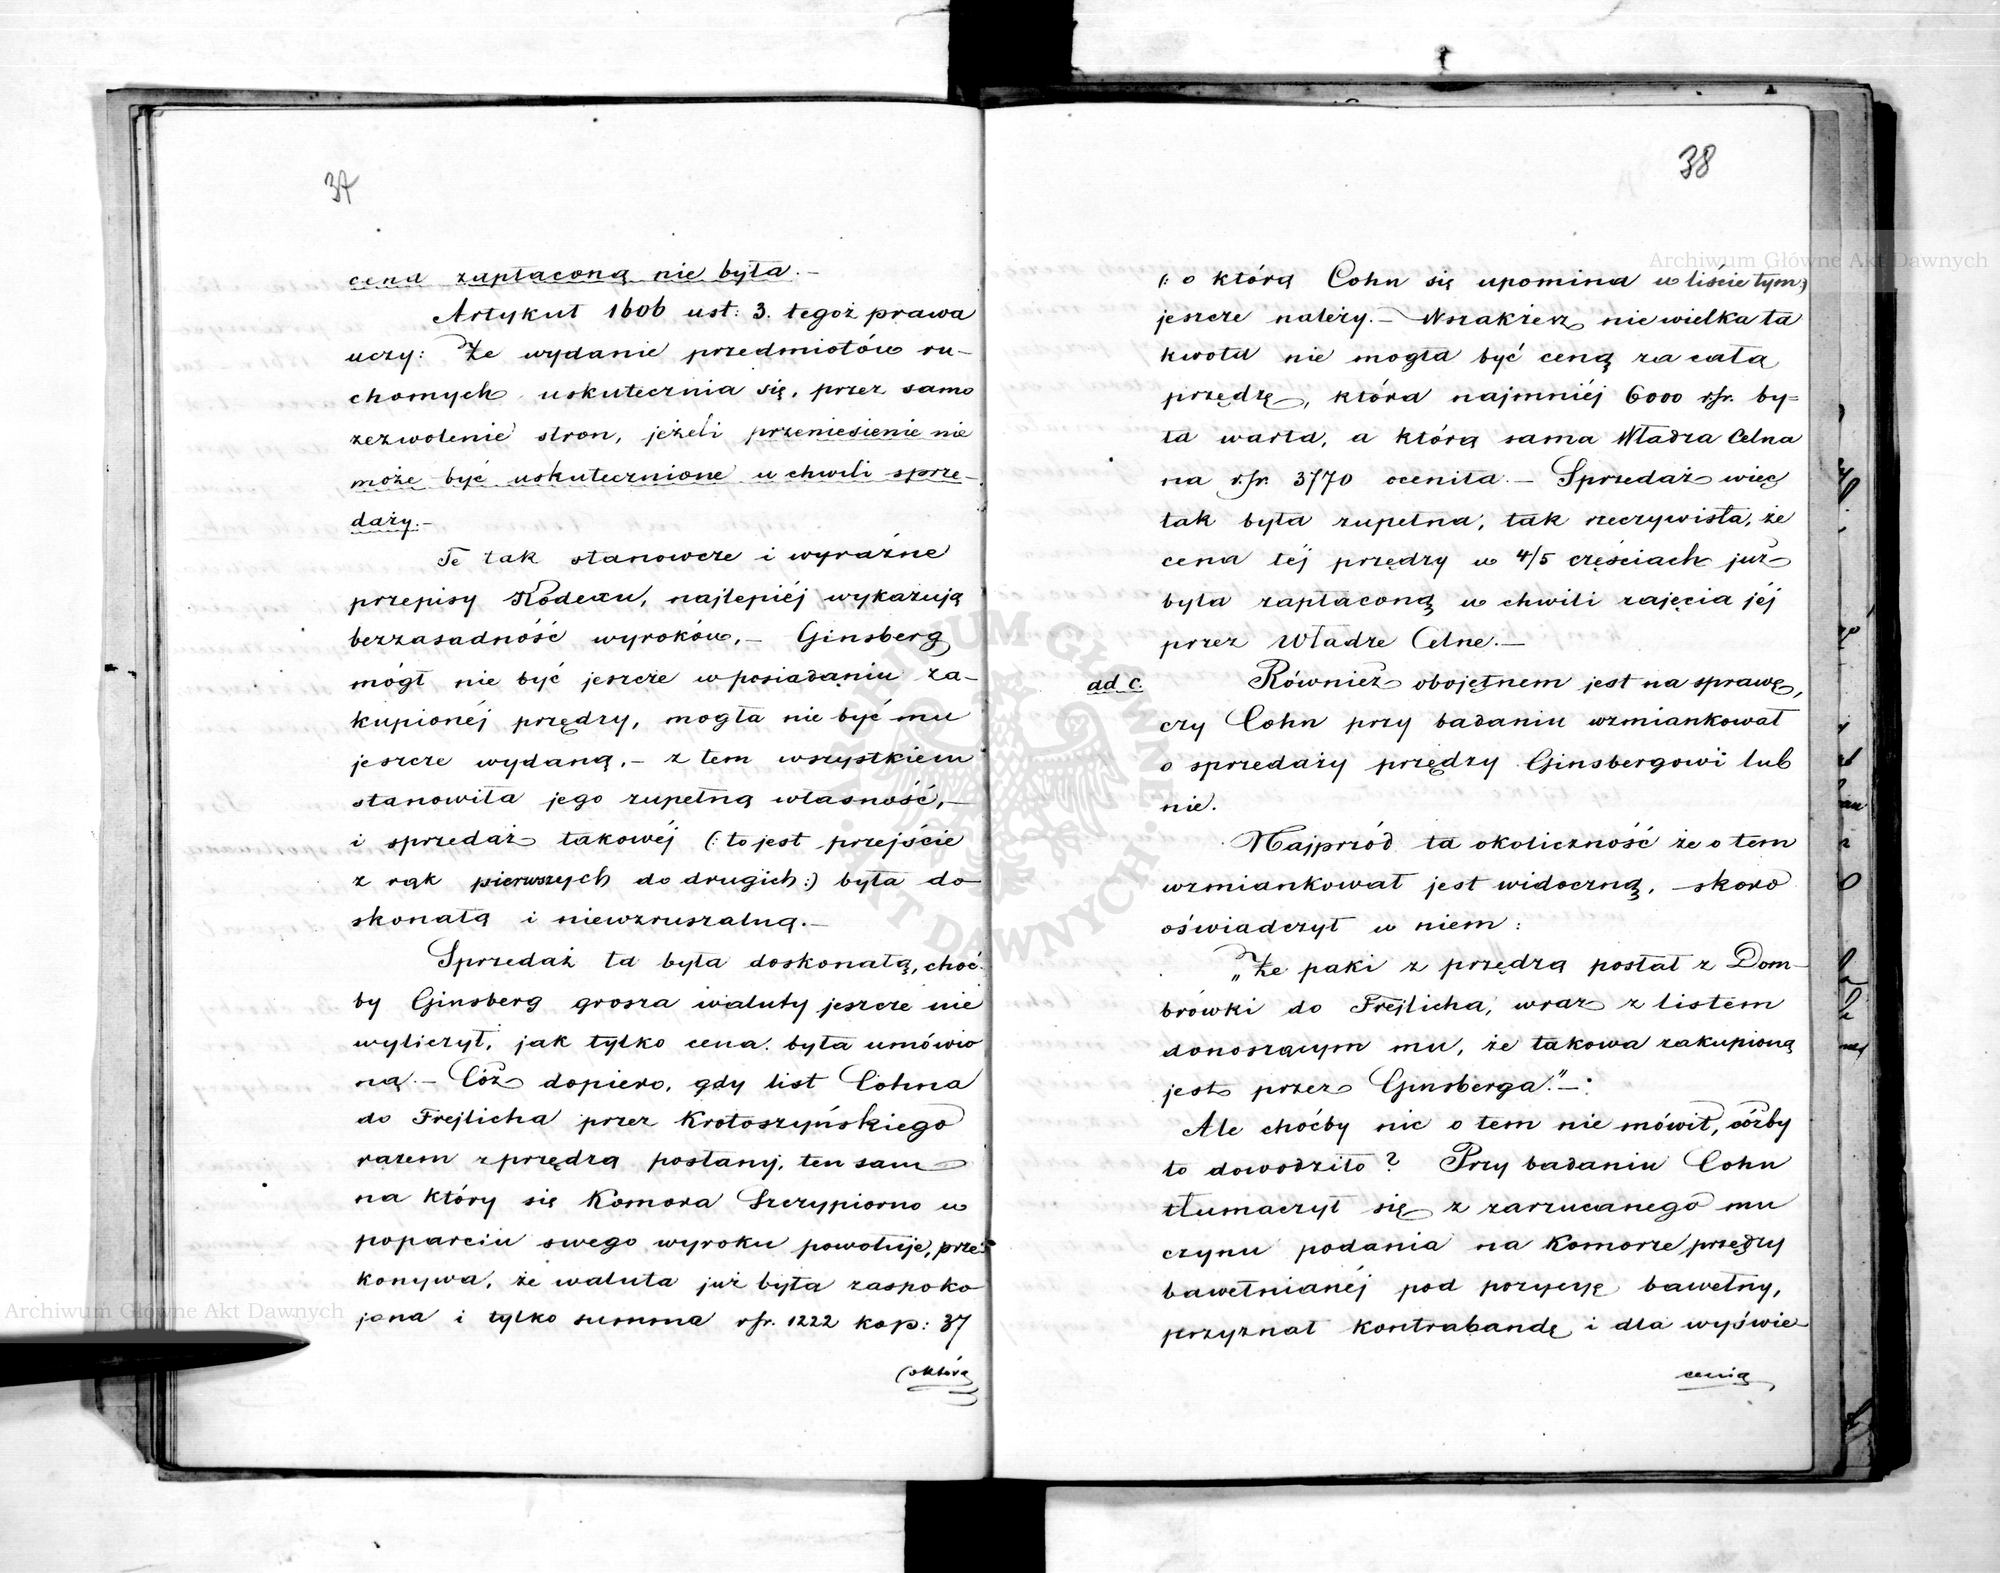 37
cena zapłaconą nie była.–
Artykuł 1606 ust: 3. tegoż prawa
uczy: Że wydanie przedmiotów ru–
chomych uskutecznia się, przez samo
zezwolenie stron, jeżeli przeniesienie nie
może być uskutecznione w chwili sprze–
daży.–
Te tak stanowcze i wyraźne
przepisy Kodexu, najlepiéj wykazują
bezzasadność wyroków,– Ginsberg
mógł nie być jeszcze w posiadaniu za–
kupionéj przędzy, mogła nie być mu
jeszcze wydaną,– z tem wszystkiem
stanowiła jego zupełną własność,–
i sprzedaż takowéj (: to jest przejście
z rąk pierwszych do drugich:) była do–
skonałą i niewzruszalną.–
Sprzedaż ta była doskonałą, choć–
by Ginsberg grosza waluty jeszcze nie
wyliczył, jak tylko cena była umówio
ną.– Cóż dopiero, gdy list Cohna
do Frejlicha przez Krotoszyńskiego
razem z przędzą posłany, ten sam
na który się Komora Szczypiorno w
poparciu swego wyroku powołuje, prze
konywa, że waluta już była zaspoko
jona i tylko summa rsr. 1222 kop: 37
(o którą
38
(: o którą Cohn się upomina w liście tym:)
jeszcze należy.– Wszakżesz niewielka ta
kwota nie mogła być ceną za całą
przędzę, która najmniéj 6000 rsr. by=
ła warta, a którą sama Władza Celna
na rsr. 3770 oceniła.– Sprzedaż więc
tak była zupełna, tak rzeczywista, że
cena téj przędzy w 4/5 częściach już
była zapłaconą w chwili zajęcia jéj
przez Władze Celne.–
ad c.
Również obojętnem jest na sprawę,
czy Cohn przy badaniu wzmiankował
o sprzedaży przędzy Ginsbergowi lub
nie.
Najprzód ta okoliczność że o tem
wzmiankował jest widoczną,– skoro
oświadczył w niem:
„Że paki z przędzą posłał z Dom–
brówki do Frejlicha, wraz z listem
donoszącym mu, że takowa zakupioną
jest przez Ginsberga."–
Ale choćby nic o tem nie mówił, cóżby
to dowodziło? Przy badaniu Cohn
tłumaczył się z zarzucanego mu
czynu podania na Komorze przędzy
bawełnianéj pod pozycyę bawełny,
przyznał kontrabandę i dla wyświe–
cenia
Archiwum Główne Akt Dawnych
Archiwum Główne Akt Dawnych
ARCHIWUM GŁÓWNE AKT DAWNYCH